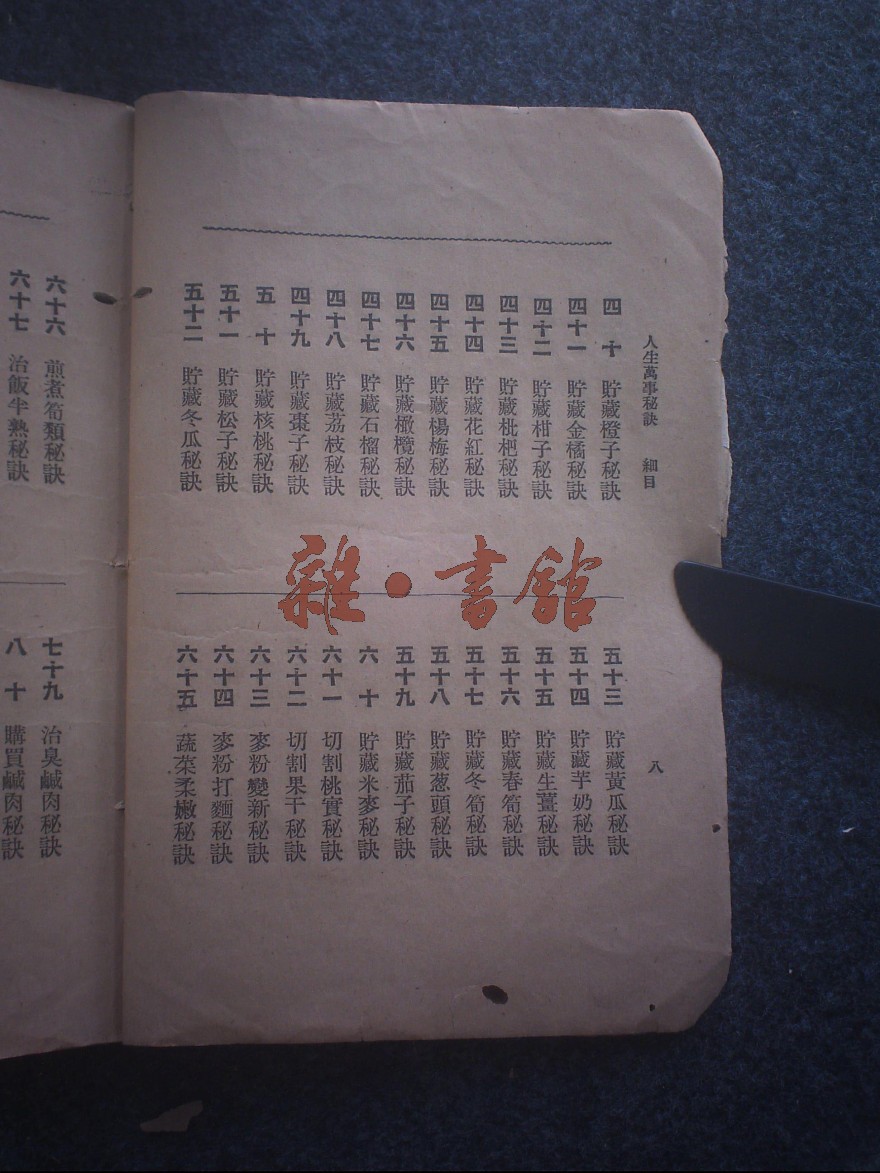 人生萬事秘訣 細目
四十 貯藏橙子秘訣
四十一 貯藏金橘秘訣
四十二 貯藏柑子秘訣
四十三 貯藏枇杷秘訣
四十四 貯藏花紅秘訣
四十五 貯藏楊梅秘訣
四十六 貯藏橄欖秘訣
四十七 貯藏石榴秘訣
四十八 貯藏荔枝秘訣
四十九 貯藏棗子秘訣
五十 貯藏核桃秘訣
五十一 貯藏松子秘訣
五十二 貯藏冬瓜秘訣
八
五十三 貯藏黃瓜秘訣
五十四 貯藏芋奶秘訣
五十五 貯藏生薑秘訣
五十六 貯藏春筍秘訣
五十七 貯藏冬筍秘訣
五十八 貯藏葱頭秘訣
五十九 貯藏茄子秘訣
六十 貯藏米麥秘訣
六十一 切割桃實秘訣
六十二 切割果干秘訣
六十三 麥粉變新秘訣
六十四 麥粉打麵秘訣
六十五 蔬菜柔嫩秘訣
六十六 煎煮筍類秘訣
六十七 治飯半熟秘訣
七十九 治臭鹹肉秘訣
八十 購買鹹肉秘訣
雜·書館